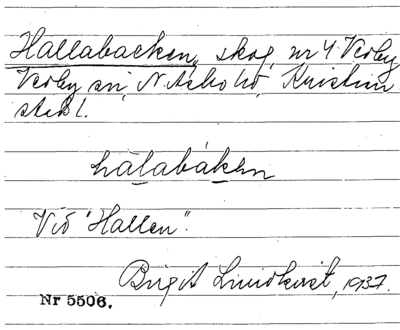 Hallabacken, skog, nr 4 Verby
Verby sn, N. Åsbo hd, Kristian
stads l.
hàlabákən
Vid "Hallen".
Birgit Lindkvist, 1937.
Nr 5506.